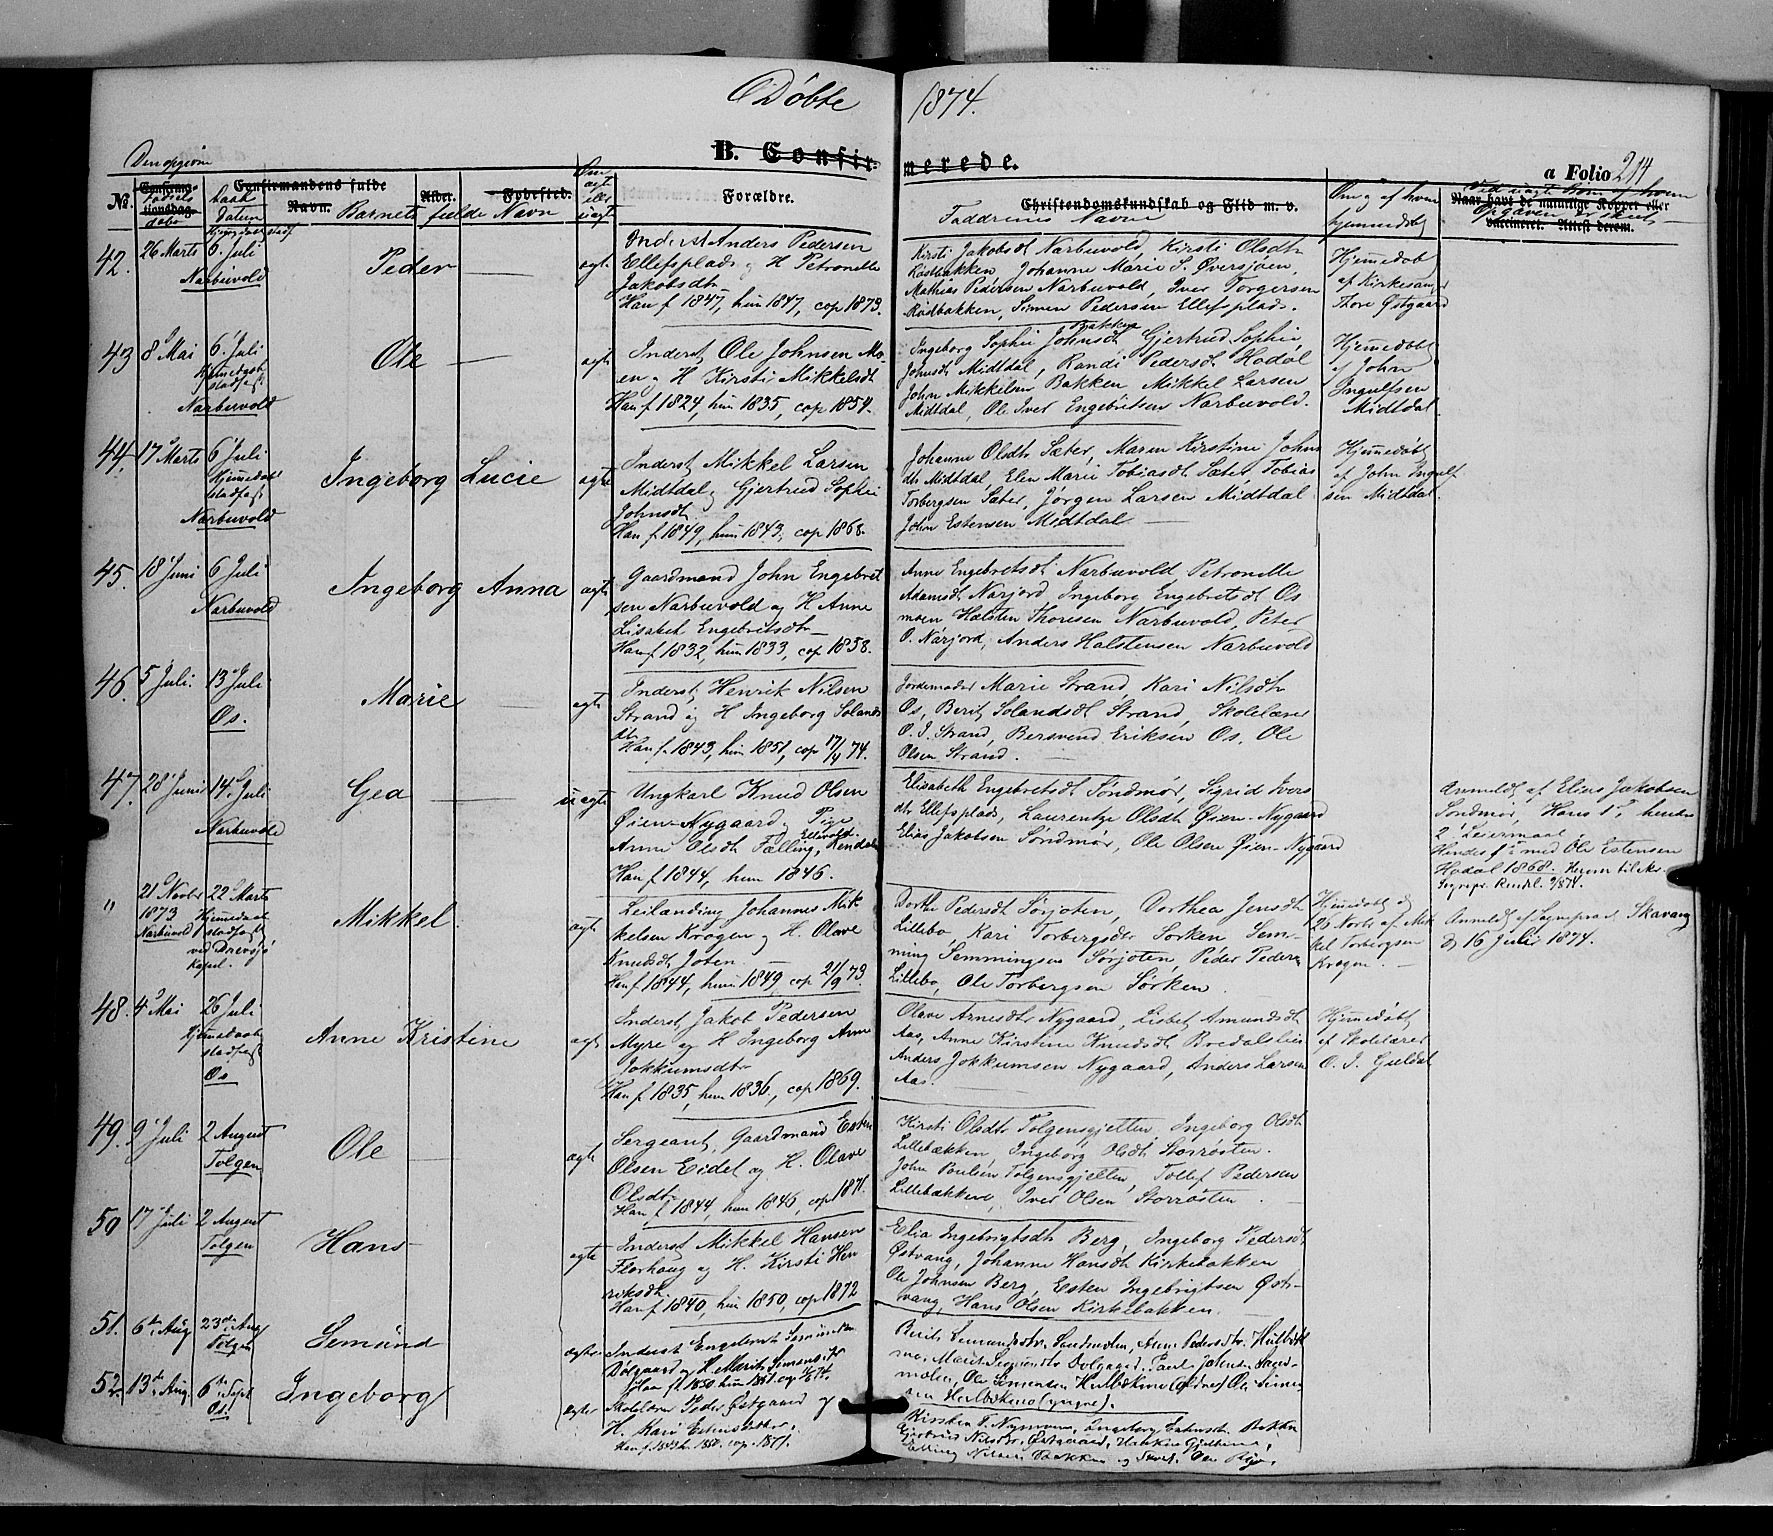 Døbte 1874.
B. Confirmerede.
a Folio 214
Den opgivne
No.
Confirmationsdag.
Fødsels
Daab
Datum
Confirmandens fulde Navn.
Barnets fulde Navn
Alder.
Fødested.
Om ægte eller uægte
Forældre.
Christendomskundskab og Flid m. v.
Faddrenes Navne
Om og af hvem hjemmedøbt
Naar havt de naturlige Kopper eller vaccineret. Attest derom.
42. 26 Marts 6 Juli
Narbuvold
Peder
ægte
Inderst Anders Pedersen
Ellefsplads og H Petronelle
Jakobsdtr
Han f 1847, hun 1847, cop 1873.
Kirsti Jakobsdt Narbuvold, Kirsti Olsdtr
Rødbakken, Johanne Marie S. Øversjøen,
Mathias Pedersen Narbuvold, Iver Torgersen
Rødbakken, Simen Pedersen Ellefsplads.
Hjemmedøbt
af Kirkesanger
Thore Østgaard
43 8 Mai 6 Juli
Hjemmedaab
stadfæst
Narbuvold
Ole
ægte
Inderst Ole Johnsen Mo-
en og H Kirsti Mikkelsdt
Han f 1824, hun 1835, cop 1854.
Ingeborg Sophie Johnsdt Bakken Gjertrud Sophie
Johnsdt Midtdal, Randi Pedersdt Hodal
John Mikkelsen Bakken Mikkel Larsen
Midtdal, Ole Iver Engebritsen Narbuvold.
Hjemmedøbt
af John
Ingulfsen
Midtdal
44. 17 Marts 6 Juli
Hjemmedaab
stadfæst
Narbuvold
Ingeborg Lucie
ægte
Inderst Mikkel Larsen
Midtdal og Gjertrud Sophie
Johnsdt
Han f 1849, hun 1843, cop 1868.
Johanne Olsdtr Sæter, Maren Kirstine Johns
dtr Midtdal, Elen Marie Tobiasdt Sæter, Tobias
Torbergsen Sæter, Jørgen Larsen Midtdal
John Estensen Midtdal
Hjemmedøbt
af John Ingulf
sen Midtdal.
45. 18 Juni 6 Juli
Narbuvold
Ingeborg Anna
ægte
Gaardmand John Engebret
sen Narbuvold og H Anne
Lisabet Engebretsdtr
Han f 1832, hun 1833, cop 1858.
Anne Engebretsdt Narbuvold Petronelle
Adamsdt Narjord, Ingeborg Engebretsdt Os
moen Halsten Thoresen Narbuvold, Peter
O. Narjord, Anders Halstensen Narbuvold
46. 5 Juli. 13 Juli
Os.
Marie
ægte
Inderst Henrik Nilsen
Strand og H Ingeborg Solands
dtr
Han f 1843, hun 1851, cop 17/4 74.
Jordemoder Marie Strand, Kari Nilsdtr
Os, Berit Solandsdt Strand, Skolelærer
O. J. Strand, Bersvend Eriksen Os, Ole
Olsen Strand.
47. 28 Juni 14 Juli
Narbuvold
Gea
uægte
Ungkarl Knud Olsen
Øien-Nygaard, Pige
Anne Olsdt Fælling, Ellevold, Rendalen
Han f 1844, hun 1846.
Elisabeth Engebretsdt Søndmør, Sigrid Ivers
dtr Ellefsplads, Laurentze Olsdt Øien-Nygaard
Elias Jakobsen Søndmør, Ole Olsen Øien-Nygaard
Anmeldt af Elias Jakobsen
Søndmør, Hans 1ste, hendes
2det Leiermaal.
Hendes 1ste med Ole Estensen
Hodal 1868.
" 21 Novbr 1873 22 Marts
Narbuvold
Hjemmedaab
stadfæst
ved Drevsjø
Kapel.
Mikkel
ægte
Leilænding Johannes Mik
kelsen Krogen og H. Olave
Knudsdt Joten
Han f 1844, hun 1849, cop 21/9 73.
Dorthe Pedersdt Sørjoten, Dorthea Jensdt
Lillebo, Kari Torbergsdtr Sorken Sem-
ming Semmingsen Sørjoten, Peder Pedersen
Lillebo, Ole Torbergsen Sørken.
Hjemmedøbt og
26 Novbr af Mik
kel Torbergsen
Krogen.
Anmeldt af Sognepræst Skavang
d 16 Juli 1874.
48. 4 Mai 26 Juli
Hjemmedaab
stadfæst
Os
Anne Kristine
ægte
Inderst Jakob Pedersen
Myre og H Ingeborg Anne
Jokkumsdtr
Han f 1835, hun 1836, cop 1869.
Olave Arnesdtr Nygaard, Lisbet Amundsdt
Aas, Anne Kirstine Knudsdt Bredalslien
Anders Jokkumsen Nygaard, Anders Larsen
Aas.
Hjemmedøbt
af Skolelærer
O. J. Gjeldal
49. 9 Juli 2 August
Tolgen
Ole
ægte
Sergeant, Gaardmand Esten
Olsen Eidet og H. Olave
Olsdtr
Han f 1844, hun 1846, cop 1871.
Kirsti Olsdtr Tolgensgjelten, Ingeborg Olsdt
Lillebækken, Ingeborg Olsdt Storrøsten.
John Paulsen Tolgensgjelten, Tollef Pedersen
Lillebækken, Iver Olsen Storrøsten.
50 17 Juli 2 August
Tolgen
Hans
ægte
Inderst Mikkel Hansen
Florhaug og H. Kirsti Hen
riksdt.
Han f 1840, hun 1850, cop 1872
Elia Ingebrigtsdt Berg, Ingeborg Pedersdt
Østvang, Johanne Hansdt Kirkebakken
Ole Johnsen Berg, Esten Ingebrigtsen Øst-
vang, Hans Olsen Kirkebakken.
51. 6te Aug 23de Aug
Tolgen
Semund
ægte
Inderst Engebret Semundsen
Dølgaard og H. Marit Simensdtr
Han f 1850 hun 1851 cop
Berit Semundsdtr. Sandmolen, Anne Pedersdtr. Hulbæk
mo, Marit Dølgaard. Paul Johnsen Sand-
molen, Ole Simensen Hulbækmo (ældre) Ole Simen
sen Hulbækmo (yngre).
52. 13de Aug. 6te Sept
Os.
Ingeborg
ægte
Skolelærer Peder Østgaard og
H. Kari Estensdatter.
Kirsten P. Nygmoen, Ingeborg Estensdt. Bakken
Gjertrud Nilsdtr. Østgaard,
Nilsen Bakken og